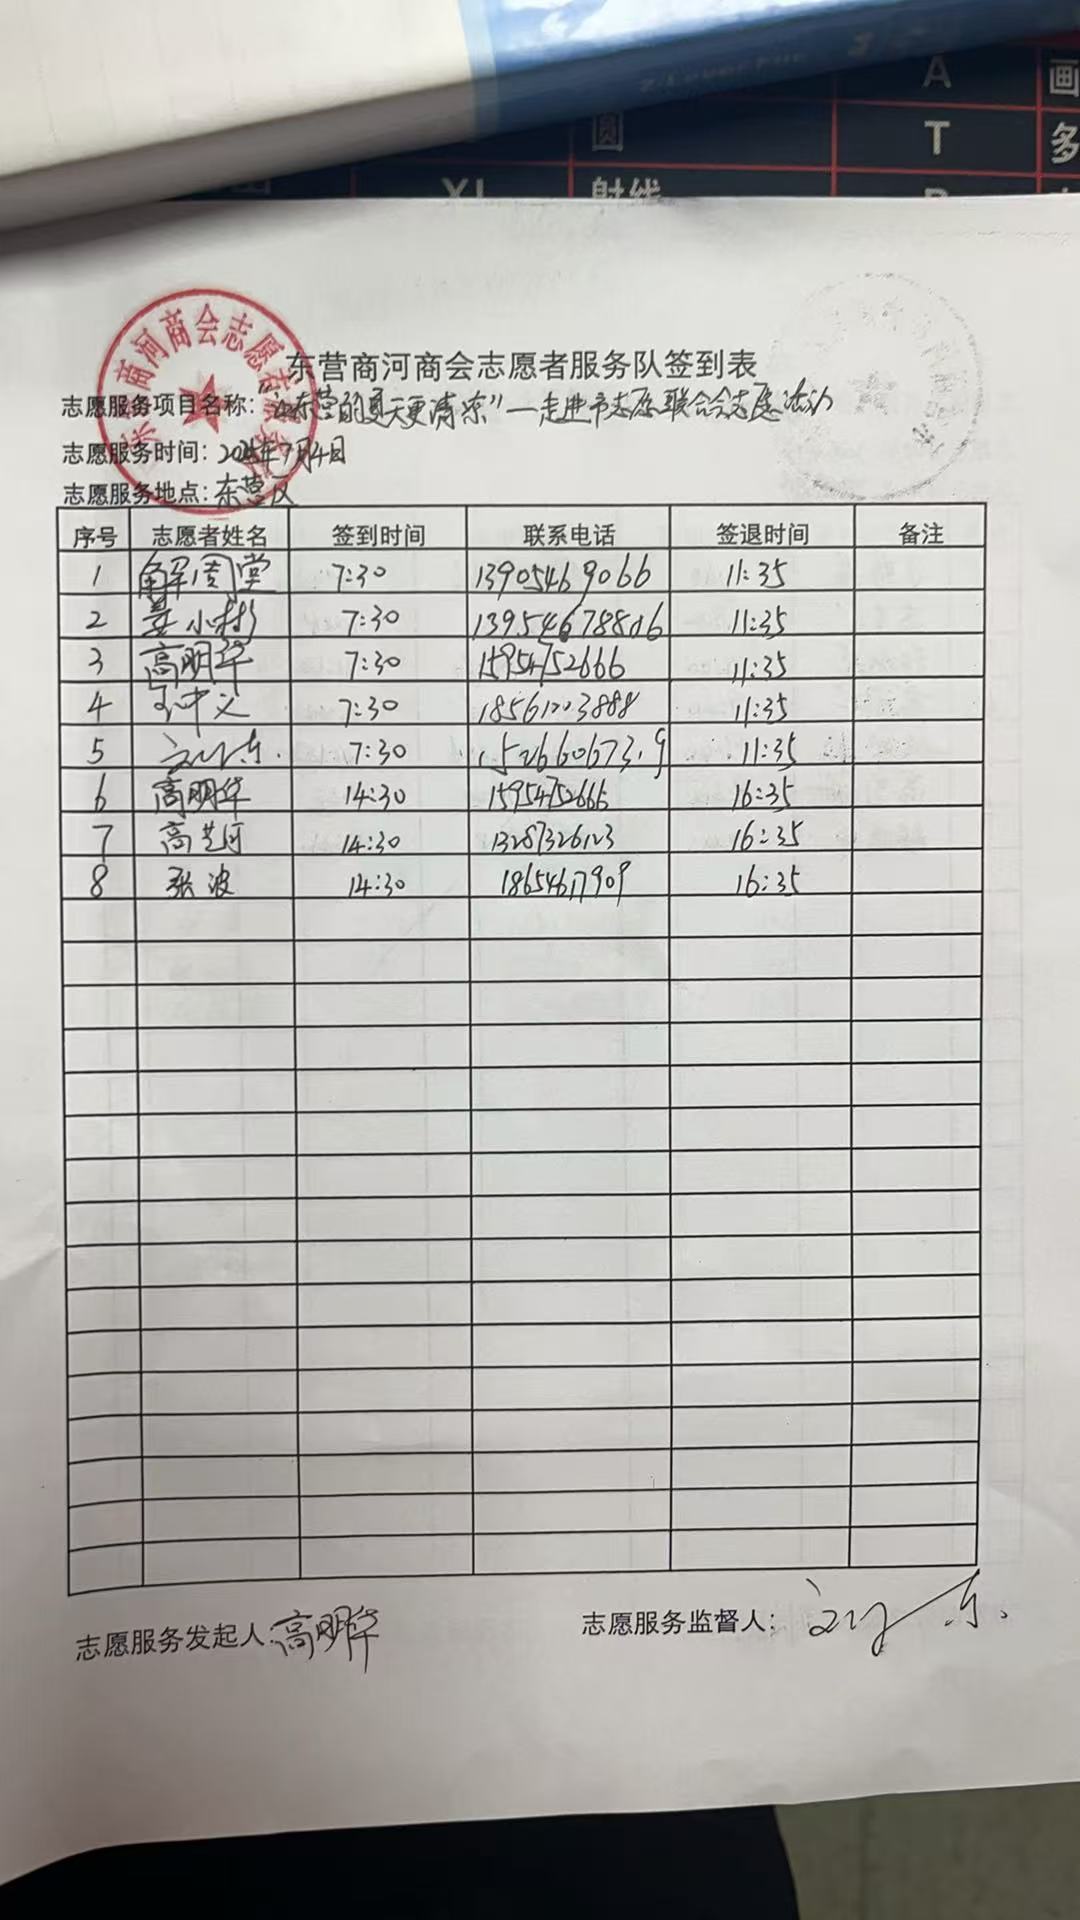 A
画
圆
T
多
射线
东营商河商会志愿者服务队签到表
志愿服务项目名称：“让东营的夏天更清凉”—走进市志愿联合会志愿活动
志愿服务时间：2025年7月4日
志愿服务地点：东营区
序号 志愿者姓名 签到时间 联系电话 签退时间 备注
1 解周堂 7:30 13905469066 11:35
2 姜小彬 7:30 13954678816 11:35
3 高明华 7:30 15954752666 11:35
4 王中义 7:30 18561203888 11:35
5 7:30 15266067319 11:35
6 高明华 14:30 15954752666 16:35
7 高艺河 14:30 13287326123 16:35
8 张波 14:30 18654617909 16:35
志愿服务发起人：高明华
志愿服务监督人：